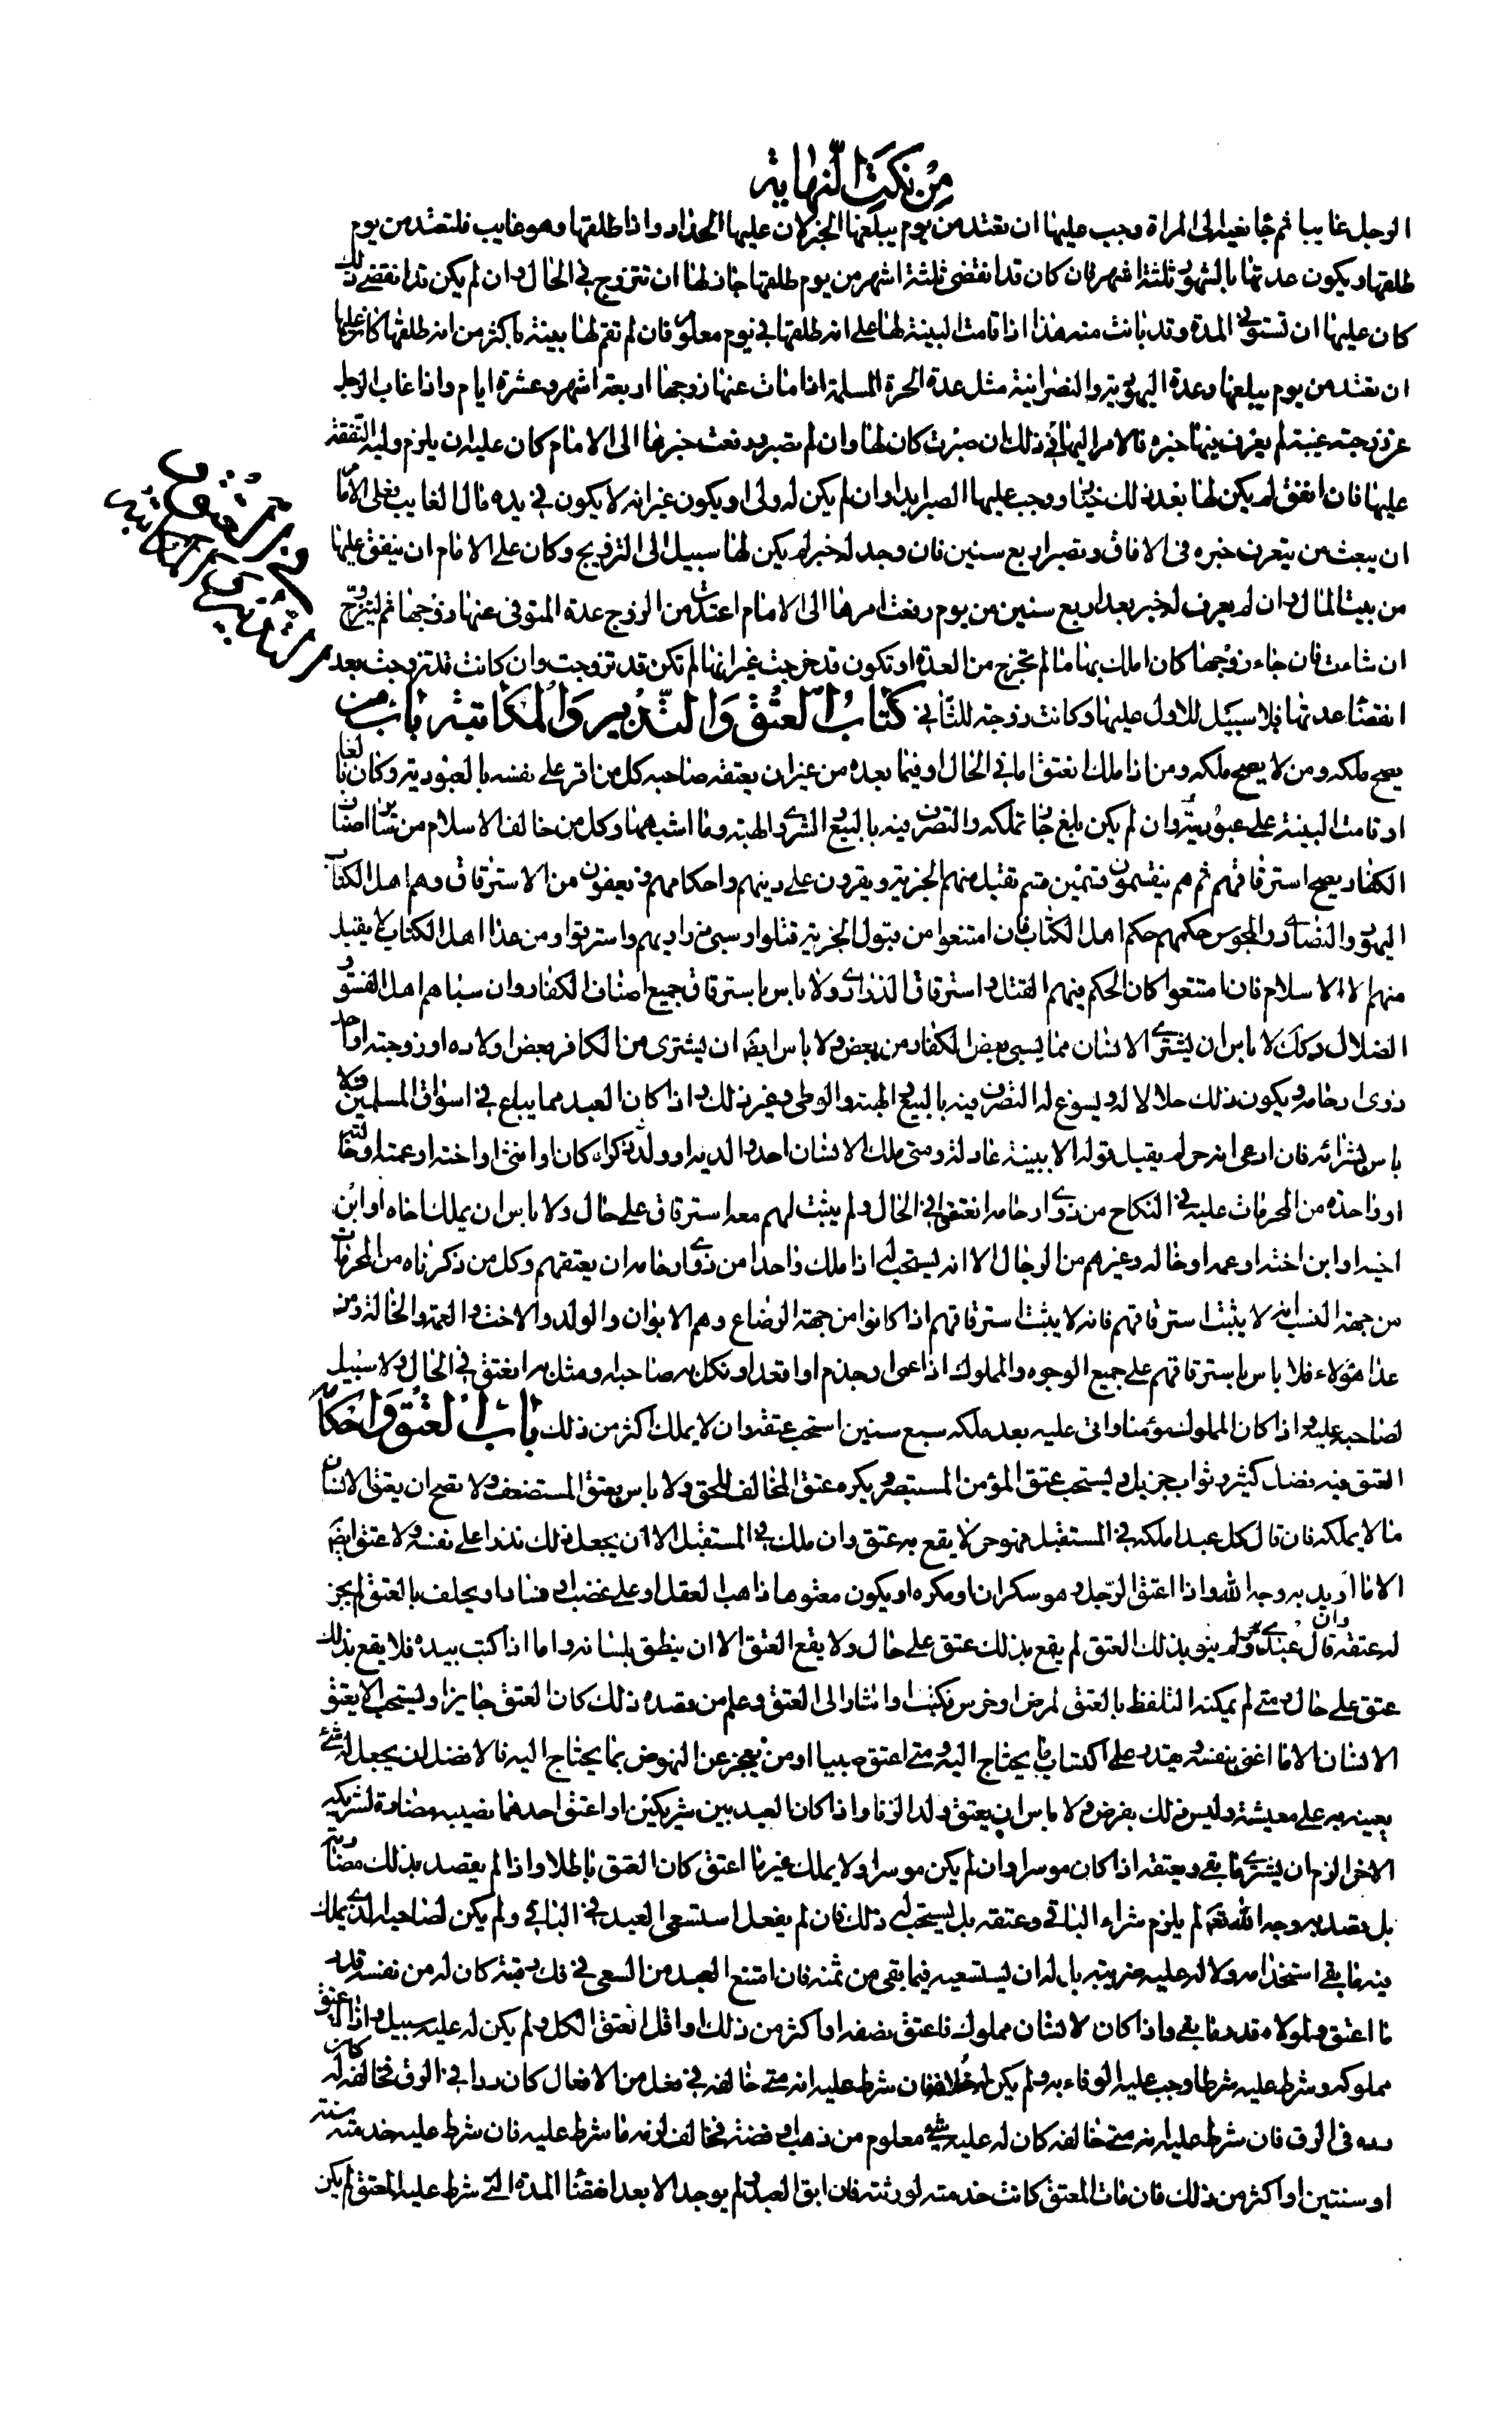 من نكت النهاية
الرجل غايبا ثم جا نعيه الى المراة وجب عليها ان تعتد من يوم يبلغها الخبر لان عليها الحداد واذا طلقها وهو غايب فلتعتد من يوم
طلقها ويكون عدتها بالشهور ثلثة اشهر فان كان قد انقضى ثلثة اشهر من يوم طلقها جاز لها ان تتزوج في الحال وان لم يكن قد انقضى ذلك
كان عليها ان تستوفى المدة وقد بانت منه هذا اذا قامت البينة لها على انه طلقها في يوم معلوم فان لم تقم لها بينة باكثر من انه طلقها كان عليها
ان تعتد من يوم يبلغها وعدة اليهودية والنصرانية مثل عدة الحرة المسلمة اذا مات عنها زوجها اربعة اشهر وعشرة ايام واذا غاب الرجل
عن زوجته غيبة لم يعرف فيها خبره فالامر اليها في ذلك ان صبرت كان لها وان لم تصبر ورفعت خبرها الى الامام كان عليه ان يلزم وليه النفقة
عليها فان انفق لم يكن لها بعد ذلك خيار ووجب عليها الصبر ابدا وان لم يكن له ولى او يكون غير انه لا يكون في يده مال الغايب فعلى الامام
ان يبعث من يتعرف خبره في الافاق وتصبر اربع سنين فان وجد له خبر لم يكن لها سبيل الى التزويج وكان على الامام ان ينفق عليها
من بيت المال وان لم يعرف له خبر بعد اربع سنين من يوم رفعت امرها الى الامام اعتدت من الزوج عدة المتوفى عنها زوجها ثم لتتزوج
ان شاءت فان جاء زوجها كان املك بها ما لم تخرج من العدة او تكون قد خرجت غير انها لم تكن قد تزوجت وان كانت قد تزوجت بعد
انقضا عدتها فلا سبيل للاول عليها وكانت زوجة للثاني كتاب العتق والتدبير والمكاتبة باب من
يصح ملكه ومن لا يصح ملكه ومن اذا ملك انعتق اما في الحال او فيما بعده من غير ان يعتقه صاحبه كل من اقر على نفسه بالعبودية وكان بالغا
او قامت البينة على عبوديته وان لم يكن بلغ جاز تملكه والتصرف فيه بالبيع والشرى والهبة وما اشبههما وكل من خالف الاسلام من ساير اصناف
الكفار يصح استرقاقهم ثم هم ينقسمون قسمين قسم تقبل منهم الجزية ويقرون على دينهم واحكامهم ويعفون من الاسترقاق وهم اهل الكتاب
اليهود والنصارى والمجوس حكمهم حكم اهل الكتاب فان امتنعوا من قبول الجزية قتلوا وسبى ذراريهم واسترقوا ومن عدا اهل الكتاب لا يقبل
منهم الا الاسلام فان امتنعوا كان الحكم فيهم القتل واسترقاق الذراري ولا باس باسترقاق جميع اصناف الكفار وان سباهم اهل الفسق و
الضلال وكك لا باس ان يشتري الانسان مما يسبي بعض الكفار من بعض ولا باس ايضا ان يشترى من الكافر بعض اولاده او زوجته او احد
ذوى ارحامه ويكون ذلك حلالا له ويسوغ له التصرف فيه بالبيع والهبة والوطي وغير ذلك واذا كان العبد مما يباع في اسواق المسلمين فلا
باس بشرائه فان ادعى انه حر لم يقبل قوله الا ببينة عادلة ومتى ملك الانسان احد والديه او ولده ذكرا كان او انثى او اخته او عمته او خالته
او واحدة من المحرمات عليه في النكاح من ذوي ارحامه انعتق في الحال ولم يثبت لهم معه استرقاق على حال ولا باس ان يملك اخاه او ابن
اخيه او ابن اخته او عمه او خاله وغيرهم من الرجال الا انه يستحب له اذا ملك واحدا من ذوي ارحامه ان يعتقهم وكل من ذكرناه من المحرمات
من جهة النسب انه لا يثبت استرقاقهم فانه لا يثبت استرقاقهم اذا كانوا من جهة الرضاع وهم الابوان والولد والاخت والعمة والخالة ومن
عدا هؤلاء فلا باس باسترقاقهم على جميع الوجوه والمملوك اذا عمى او جذم او اقعد او نكل به صاحبه ومثل به انعتق في الحال ولا سبيل
لصاحبه عليه واذا كان المملوك مؤمنا واتى عليه بعد ملكه سبع سنين استحب عتقه وان لا يملك اكثر من ذلك باب العتق واحكامه
العتق فيه فضل كثير وثواب جزيل ويستحب عتق المؤمن المستبصر ويكره عتق المخالف للحق ولا باس بعتق المستضعف ولا تصح ان يعتق الانسان
ما لا يملكه فان قال كل عبد املكه في المستقبل فهو حر لا يقع به عتق وان ملك في المستقبل الا ان يجعل ذلك نذرا على نفسه ولا عتق ايضا
الا ما اريد به وجه الله واذا اعتق الرجل وهو سكران او مكره او يكون معتوها ذاهب العقل او على غضب او فساد او يحلف بالعتق لم يجز
له عتقه وان قال عبدي حر ولم ينو بذلك العتق لم يقع بذلك عتق على حال ولا يقع العتق الا ان ينطق بلسانه واما اذا كتب بيده فلا يقع بذلك
عتق على حال ومتى لم يمكنه التلفظ بالعتق لمرض او خرس فكتب او اشار الى العتق وعلم من قصده ذلك كان العتق جايزا ويستحب الا يعتق
الانسان الا ما اغنى بنفسه ويقدر على اكتساب ما يحتاج اليه ومتى اعتق صبيا او من يعجز عن النهوض بما يحتاج اليه فالافضل ان يجعل له شئ
يعينه به على معيشة وليس ذلك بفرض ولا باس ان يعتق ولد الزنا واذا كان العبد بين شريكين او اعتق احدهما نصيبه مضارة لشريكه
الاخر الزم ان يشتري ما بقى ويعتقه اذا كان موسرا وان لم يكن موسرا ولا يملك غير ما اعتق كان العتق باطلا واذا لم يقصد بذلك مضارته
بل قصد به وجه الله تعم لم يلزم شراء الباقى وعتقه بل يستحب له ذلك فان لم يفعل استسعى العبد في الباقى ولم يكن لصاحبه الذي يملك
منه ما بقى استخدامه ولا له عليه ضريبة بل له ان يستسعيه فيما بقى من ثمنه فان امتنع العبد من السعى في فك رقبته كان له من نفسه قدر
ما اعتق ولمولاه قدر ما بقى واذا كان لانسان مملوك فاعتق نصفه او اكثر من ذلك او اقل انعتق الكل ولم يكن له عليه سبيل واذا اعتق
مملوكه وشرط عليه شرطا وجب عليه الوفاء به ولم يكن له خلافه فان شرط عليه انه متى خالفه في فعل من الافعال كان ردا في الرق فخالفه كان له
رده في الرق فان شرط عليه انه متى خالفه كان له عليه شئ معلوم من ذهب او فضة فخالف لزمه ما شرط عليه فان شرط عليه خدمته سنة
او سنتين او اكثر من ذلك فان مات المعتق كانت خدمته لورثته فان ابق العبد ولم يوجد الا بعد انقضا المدة التي شرط عليه المعتق لم يكن